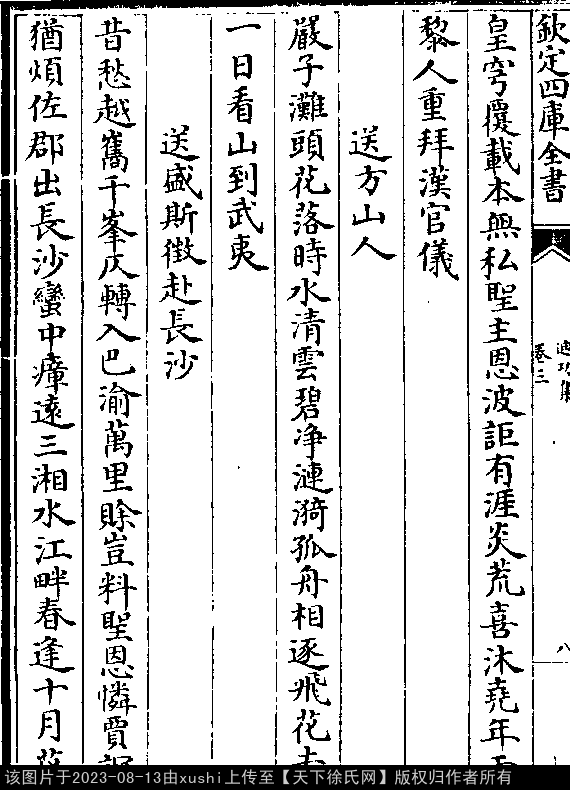 欽定四庫全書
迪功集
卷三
八
皇穹覆載本無私聖主恩波詎有涯炎荒喜沐堯年
黎人重拜漢官儀
送方山人
嚴子灘頭花落時水清雲碧净漣漪孤舟相逐飛花去
一日看山到武夷
送盛斯徵赴長沙
昔愁越巂千峯仄轉入巴渝萬里賒豈料聖恩憐賈
猶煩佐郡出長沙蠻中瘴遠三湘水江畔春逢十月
该图片于2023-08-13由xushi上传至【天下徐氏网】版权归作者所有